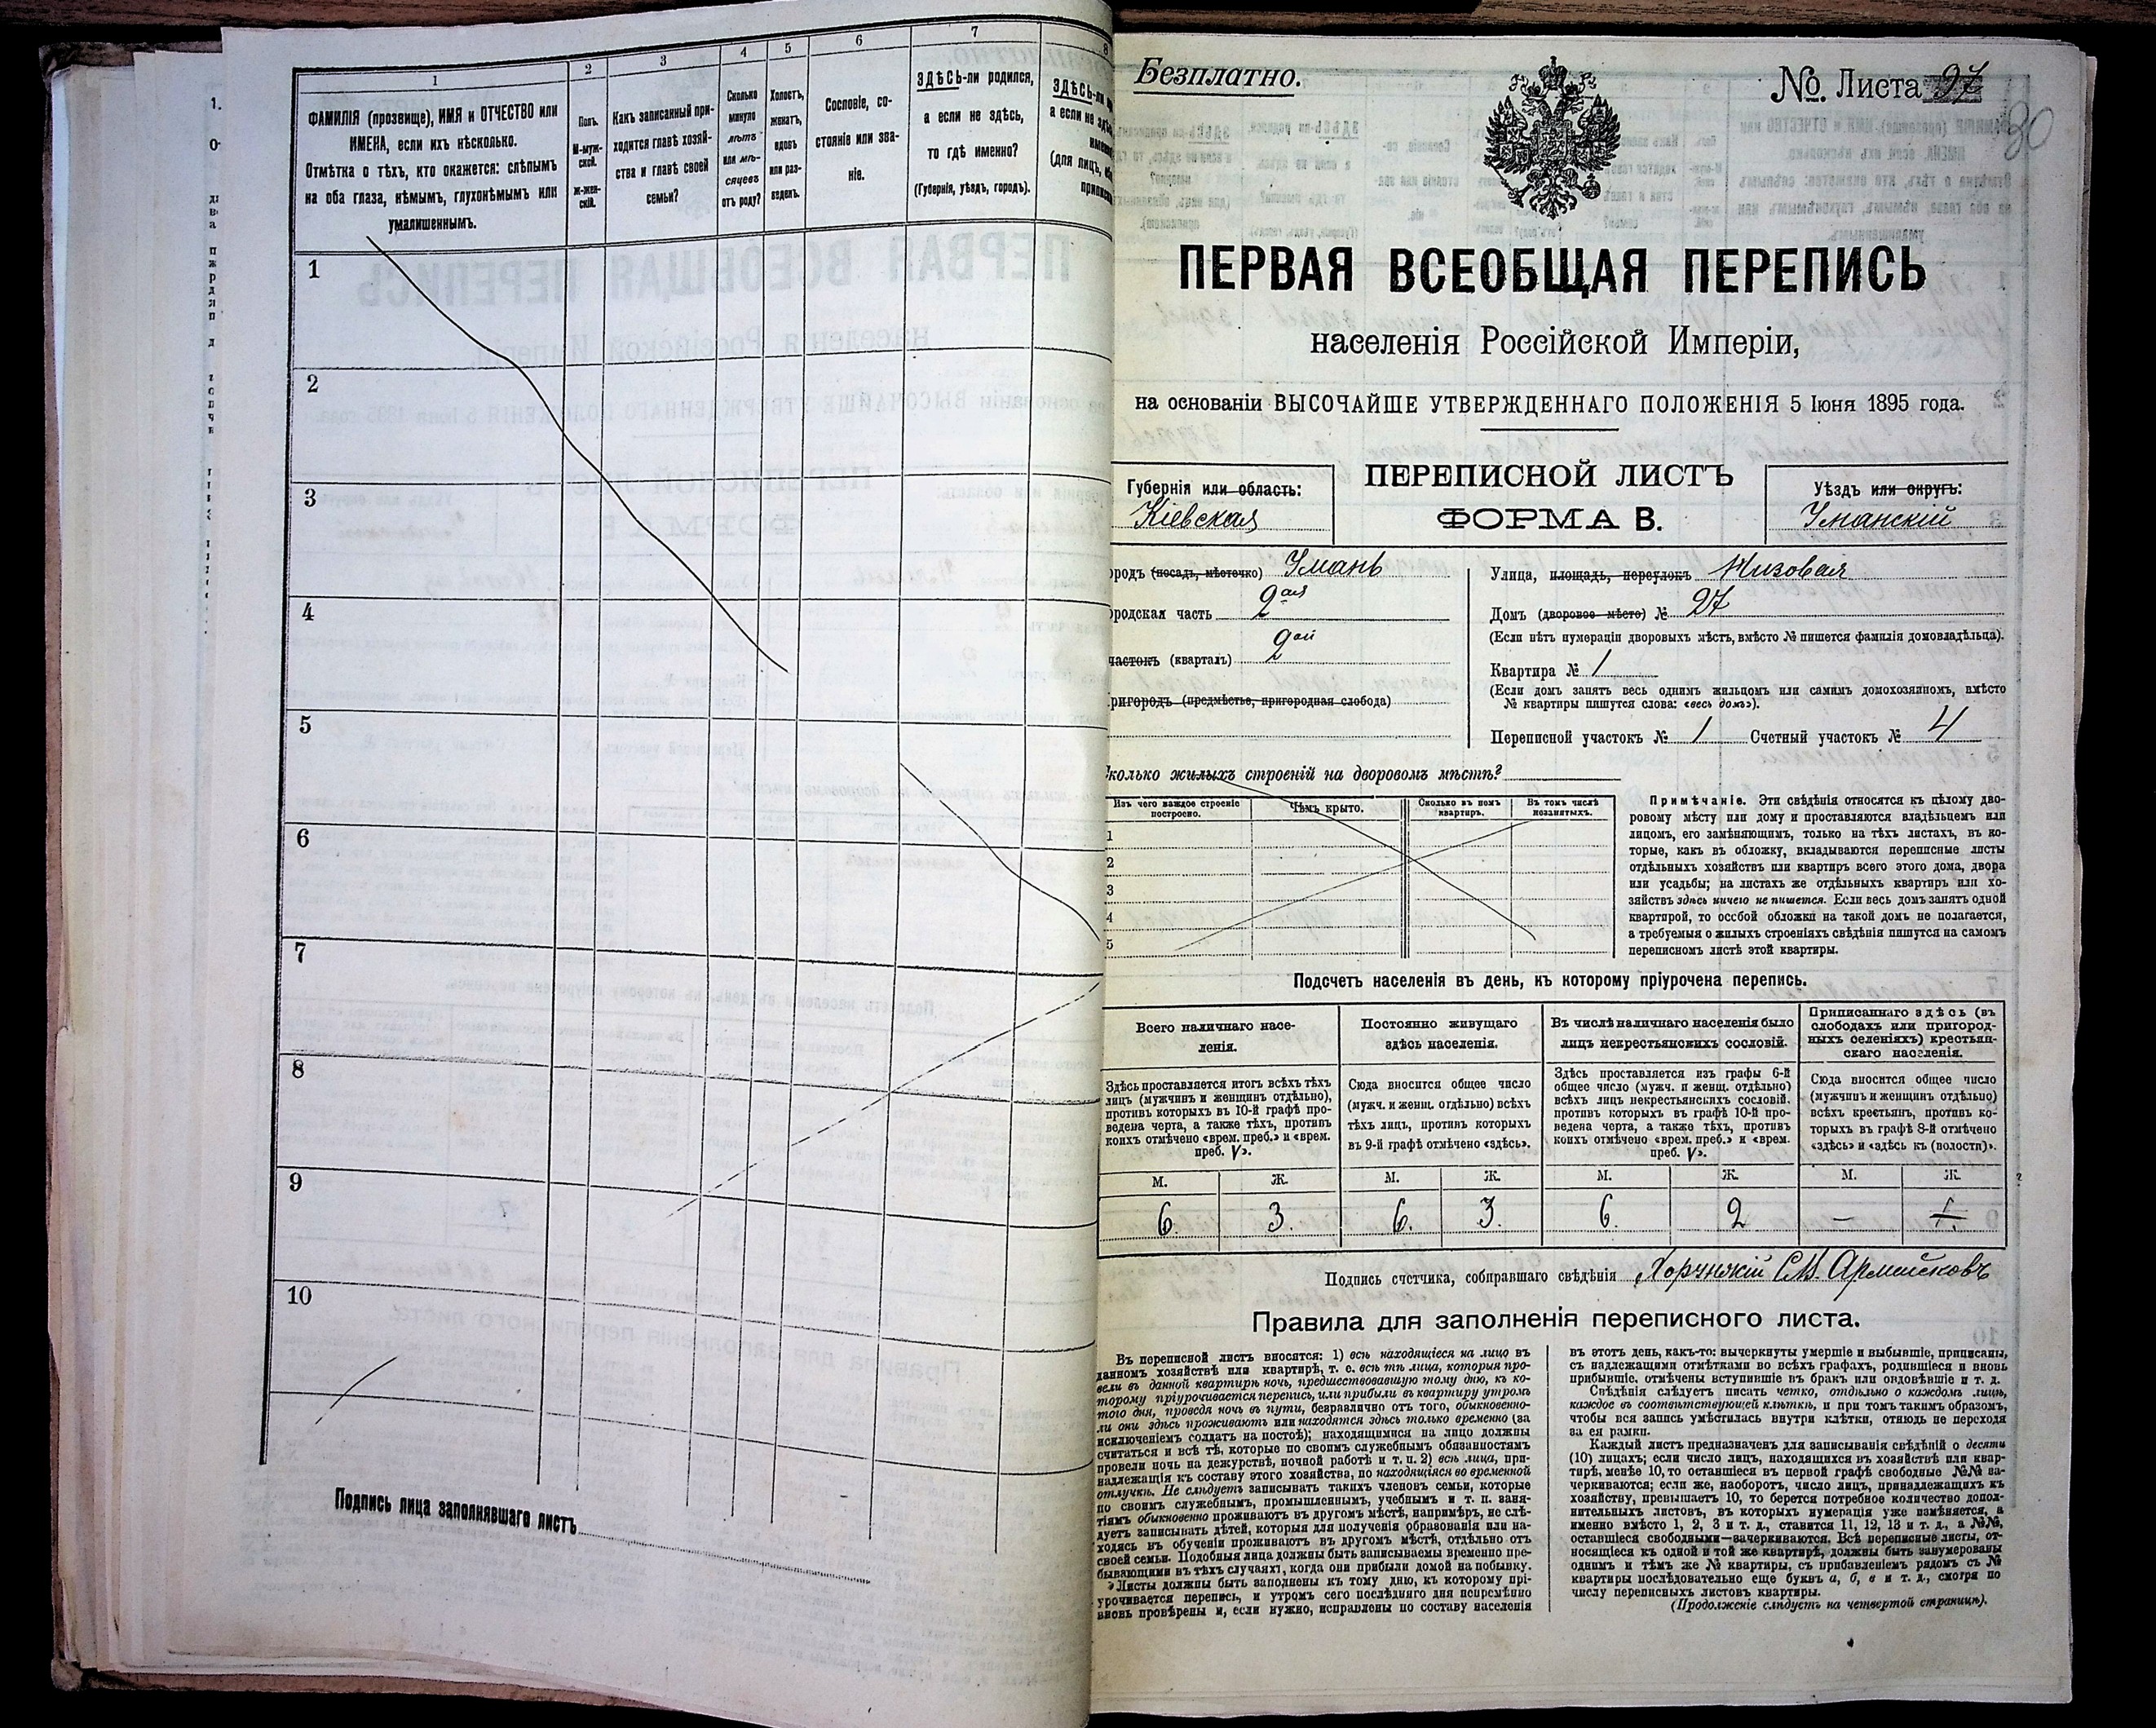 1
ФАМИЛІЯ (прозвище), ИМЯ и ОТЧЕСТВО или
ИМЕНА, если ихъ нѣсколько.
Отмѣтка о тѣхъ, кто окажется: слѣпымъ
на оба глаза, нѣмымъ, глухонѣмымъ или
умалишеннымъ.
2
Полъ.
М-муж-
ской.
ж-жен-
скій.
3
Какъ записанный при-
ходится главѣ хозяй-
ства и главѣ своей
семьи?
4
Сколько
минуло
лѣтъ
или мѣ-
сяцевъ
отъ роду?
5
Холостъ,
женатъ,
вдовъ
или раз-
веденъ.
6
Сословіе, со-
стояніе или зва-
ніе.
7
ЗДѢСЬ-ли родился,
а если не здѣсь,
то гдѣ именно?
(Губернія, уѣздъ, городъ).
8
ЗДѢСЬ-ли
а если не здѣ
(для лицъ,
1
2
3
4
5
6
7
8
9
10
Подпись лица заполнявшаго листъ
Безплатно.
№ Листа 27
30
ПЕРВАЯ ВСЕОБЩАЯ ПЕРЕПИСЬ
населенія Россійской Имперіи,
на основаніи ВЫСОЧАЙШЕ УТВЕРЖДЕННАГО ПОЛОЖЕНІЯ 5 Іюня 1895 года.
Губернія или область:
Кіевская
ПЕРЕПИСНОЙ ЛИСТЪ
ФОРМА В.
Уѣздъ или округъ:
Уманскій
ородъ (посадъ, мѣстечко) Умань
ородская часть 2ая
частокъ (кварталъ) 2ой
ригородъ (предмѣстье, пригородная слобода)
Улица, площадь, переулокъ Низовая
Домъ (дворовое мѣсто) № 27
(Если нѣтъ нумераціи дворовыхъ мѣстъ, вмѣсто № пишется фамилія домовладѣльца).
Квартира № 1
(Если домъ занятъ весь однимъ жильцомъ или самимъ домохозяиномъ, вмѣсто
№ квартиры пишутся слова: «весь домъ»).
Переписной участокъ № 1 Счетный участокъ № 4
колько жилыхъ строеній на дворовомъ мѣстѣ?
Изъ чего каждое строеніе
построено.
Чѣмъ крыто.
Сколько въ немъ
квартиръ.
Въ томъ числѣ
незанятыхъ.
1
2
3
4
5
Примѣчаніе. Эти свѣдѣнія относятся къ цѣлому дво-
ровому мѣсту или дому и проставляются владѣльцемъ или
лицомъ, его замѣняющимъ, только на тѣхъ листахъ, въ ко-
торые, какъ въ обложку, вкладываются переписные листы
отдѣльныхъ хозяйствъ или квартиръ всего этого дома, двора
или усадьбы; на листахъ же отдѣльныхъ квартиръ или хо-
зяйствъ здѣсь ничего не пишется. Если весь домъ занятъ одной
квартирой, то особой обложки на такой домъ не полагается,
а требуемыя о жилыхъ строеніяхъ свѣдѣнія пишутся на самомъ
переписномъ листѣ этой квартиры.
Подсчетъ населенія въ день, къ которому пріурочена перепись.
Всего наличнаго насе-
ленія.
Здѣсь проставляется итогъ всѣхъ тѣхъ
лицъ (мужчинъ и женщинъ отдѣльно),
противъ которыхъ въ 10-й графѣ про-
ведена черта, а также тѣхъ, противъ
коихъ отмѣчено «врем. преб.» и «врем.
преб. V».
Постоянно живущаго
здѣсь населенія.
Сюда вносится общее число
(мужч. и женщ. отдѣльно) всѣхъ
тѣхъ лицъ, противъ которыхъ
въ 9-й графѣ отмѣчено «здѣсь».
Въ числѣ наличнаго населенія было
лицъ некрестьянскихъ сословій.
Здѣсь проставляется изъ графы 6-й
общее число (мужч. и женщ. отдѣльно)
всѣхъ лицъ некрестьянскихъ сословій.
противъ которыхъ въ графѣ 10-й про-
ведена черта, а также тѣхъ, противъ
коихъ отмѣчено «врем. преб.» и «врем.
преб. V».
Приписаннаго здѣсь (въ
слободахъ или пригород-
ныхъ селеніяхъ) крестьян-
скаго населенія.
Сюда вносится общее число
(мужчинъ и женщинъ отдѣльно)
всѣхъ крестьянъ, противъ ко-
торыхъ въ графѣ 8-й отмѣчено
«здѣсь» и «здѣсь къ (волости)».
М. Ж. М. Ж. М. Ж. М. Ж.
6. 3. 6. 3. 6. 2 —
Подпись счетчика, собиравшаго свѣдѣнія Хорунжій
Правила для заполненія переписного листа.
Въ переписной листъ вносятся: 1) всѣ находящіеся на лицо въ
данномъ хозяйствѣ или квартирѣ, т. е. всѣ тѣ лица, которыя про-
вели въ данной квартирѣ ночь, предшествовавшую тому дню, къ ко-
торому пріурочивается перепись, или прибыли въ квартиру утромъ
того дня, проведя ночь въ пути, безразлично отъ того, обыкновенно-
ли они здѣсь проживаютъ или находятся здѣсь только временно (за
исключеніемъ солдатъ на постоѣ); находящимися на лицо должны
считаться и всѣ тѣ, которые по своимъ служебнымъ обязанностямъ
провели ночь на дежурствѣ, ночной работѣ и т. п. 2) всѣ лица, при-
надлежащія къ составу этого хозяйства, но находящіяся во временной
отлучкѣ. Не слѣдуетъ записывать такихъ членовъ семьи, которые
по своимъ служебнымъ, промышленнымъ, учебнымъ и т. п. заня-
тіямъ обыкновенно проживаютъ въ другомъ мѣстѣ, напримѣръ, не слѣ-
дуетъ записывать дѣтей, которыя для полученія образованія или на-
ходясь въ обученіи проживаютъ въ другомъ мѣстѣ, отдѣльно отъ
своей семьи. Подобныя лица должны быть записываемы временно пре-
бывающими въ тѣхъ случаяхъ, когда они прибыли домой на побывку.
Листы должны быть заполнены къ тому дню, къ которому прі-
урочивается перепись, и утромъ сего послѣдняго дня непремѣнно
вновь провѣрены и, если нужно, исправлены по составу населенія
въ этотъ день, какъ-то: вычеркнуты умершіе и выбывшіе, приписаны,
съ надлежащими отмѣтками во всѣхъ графахъ, родившіеся и вновь
прибывшіе, отмѣчены вступившіе въ бракъ или овдовѣвшіе и т. д.
Свѣдѣнія слѣдуетъ писать четко, отдѣльно о каждомъ лицѣ,
каждое въ соотвѣтствующей клѣткѣ, и при томъ такимъ образомъ,
чтобы вся запись умѣстилась внутри клѣтки, отнюдь не переходя
за ея рамки.
Каждый листъ предназначенъ для записыванія свѣдѣній о десяти
(10) лицахъ; если число лицъ, находящихся въ хозяйствѣ или квар-
тирѣ, менѣе 10, то оставшіеся въ первой графѣ свободные №№ за-
черкиваются; если же, наоборотъ, число лицъ, принадлежащихъ къ
хозяйству, превышаетъ 10, то берется потребное количество допол-
нительныхъ листовъ, въ которыхъ нумерація уже измѣняется, а
именно вмѣсто 1, 2, 3 и т. д., ставится 11, 12, 13 и т. д., а №№,
оставшіеся свободными—зачеркиваются. Всѣ переписные листы, от-
носящіеся къ одной и той же квартирѣ, должны быть занумерованы
однимъ и тѣмъ же № квартиры, съ прибавленіемъ рядомъ съ №
квартиры послѣдовательно еще буквъ а, б, в и т. д., смотря по
числу переписныхъ листовъ квартиры.
(Продолженіе слѣдуетъ на четвертой страницѣ).